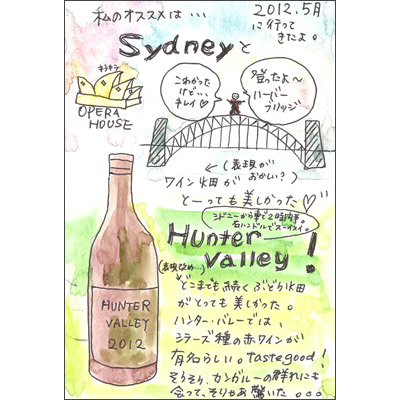 私のオススメは…
2012.5月
に行って
きたよ。
Sydneyと
キラキラ
OPERA
HOUSE
こわかった
けど…
キレイ♡
登ったよ〜
ハーバー
ブリッジ
←(表現が
おかしい?)
ワイン畑が
とーっても美しかった♡
シドニーから車で2時間半。
右ハンドルでスーイスイ。
Hunter
Valley!
(表現改め…)
どこまでも続くぶどう畑
がとっても美しかった。
ハンター・バレーでは、
シラーズ種の赤ワインが
有名らしい。taste good!
そりそり、カンガルーの群れにも
会って、そりゃあ驚いた。。。
HUNTER
VALLEY
2012